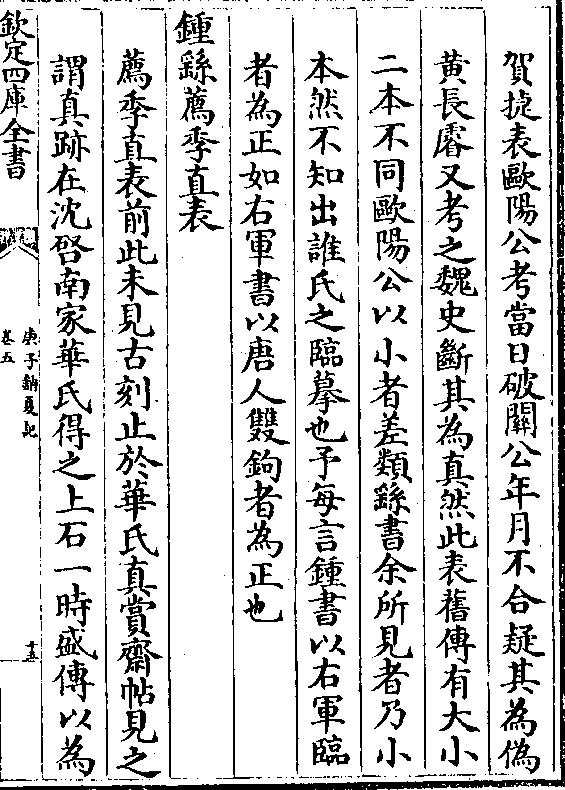 賀捷表歐陽公考當日破關公年月不合疑其為偽
黄長睿又考之魏史斷其為真然此表舊傳有大小
二本不同歐陽公以小者差類繇書余所見者乃小
本然不知出誰氏之臨摹也予每言鍾書以右軍臨
者為正如右軍書以唐人雙鉤者為正也
鍾繇薦季直表
薦季直表前此未見古刻止於華氏真賞齋帖見之
謂真跡在沈啓南家華氏得之上石一時盛傳以為
欽定四庫全書
庚子銷夏記
卷五
十五